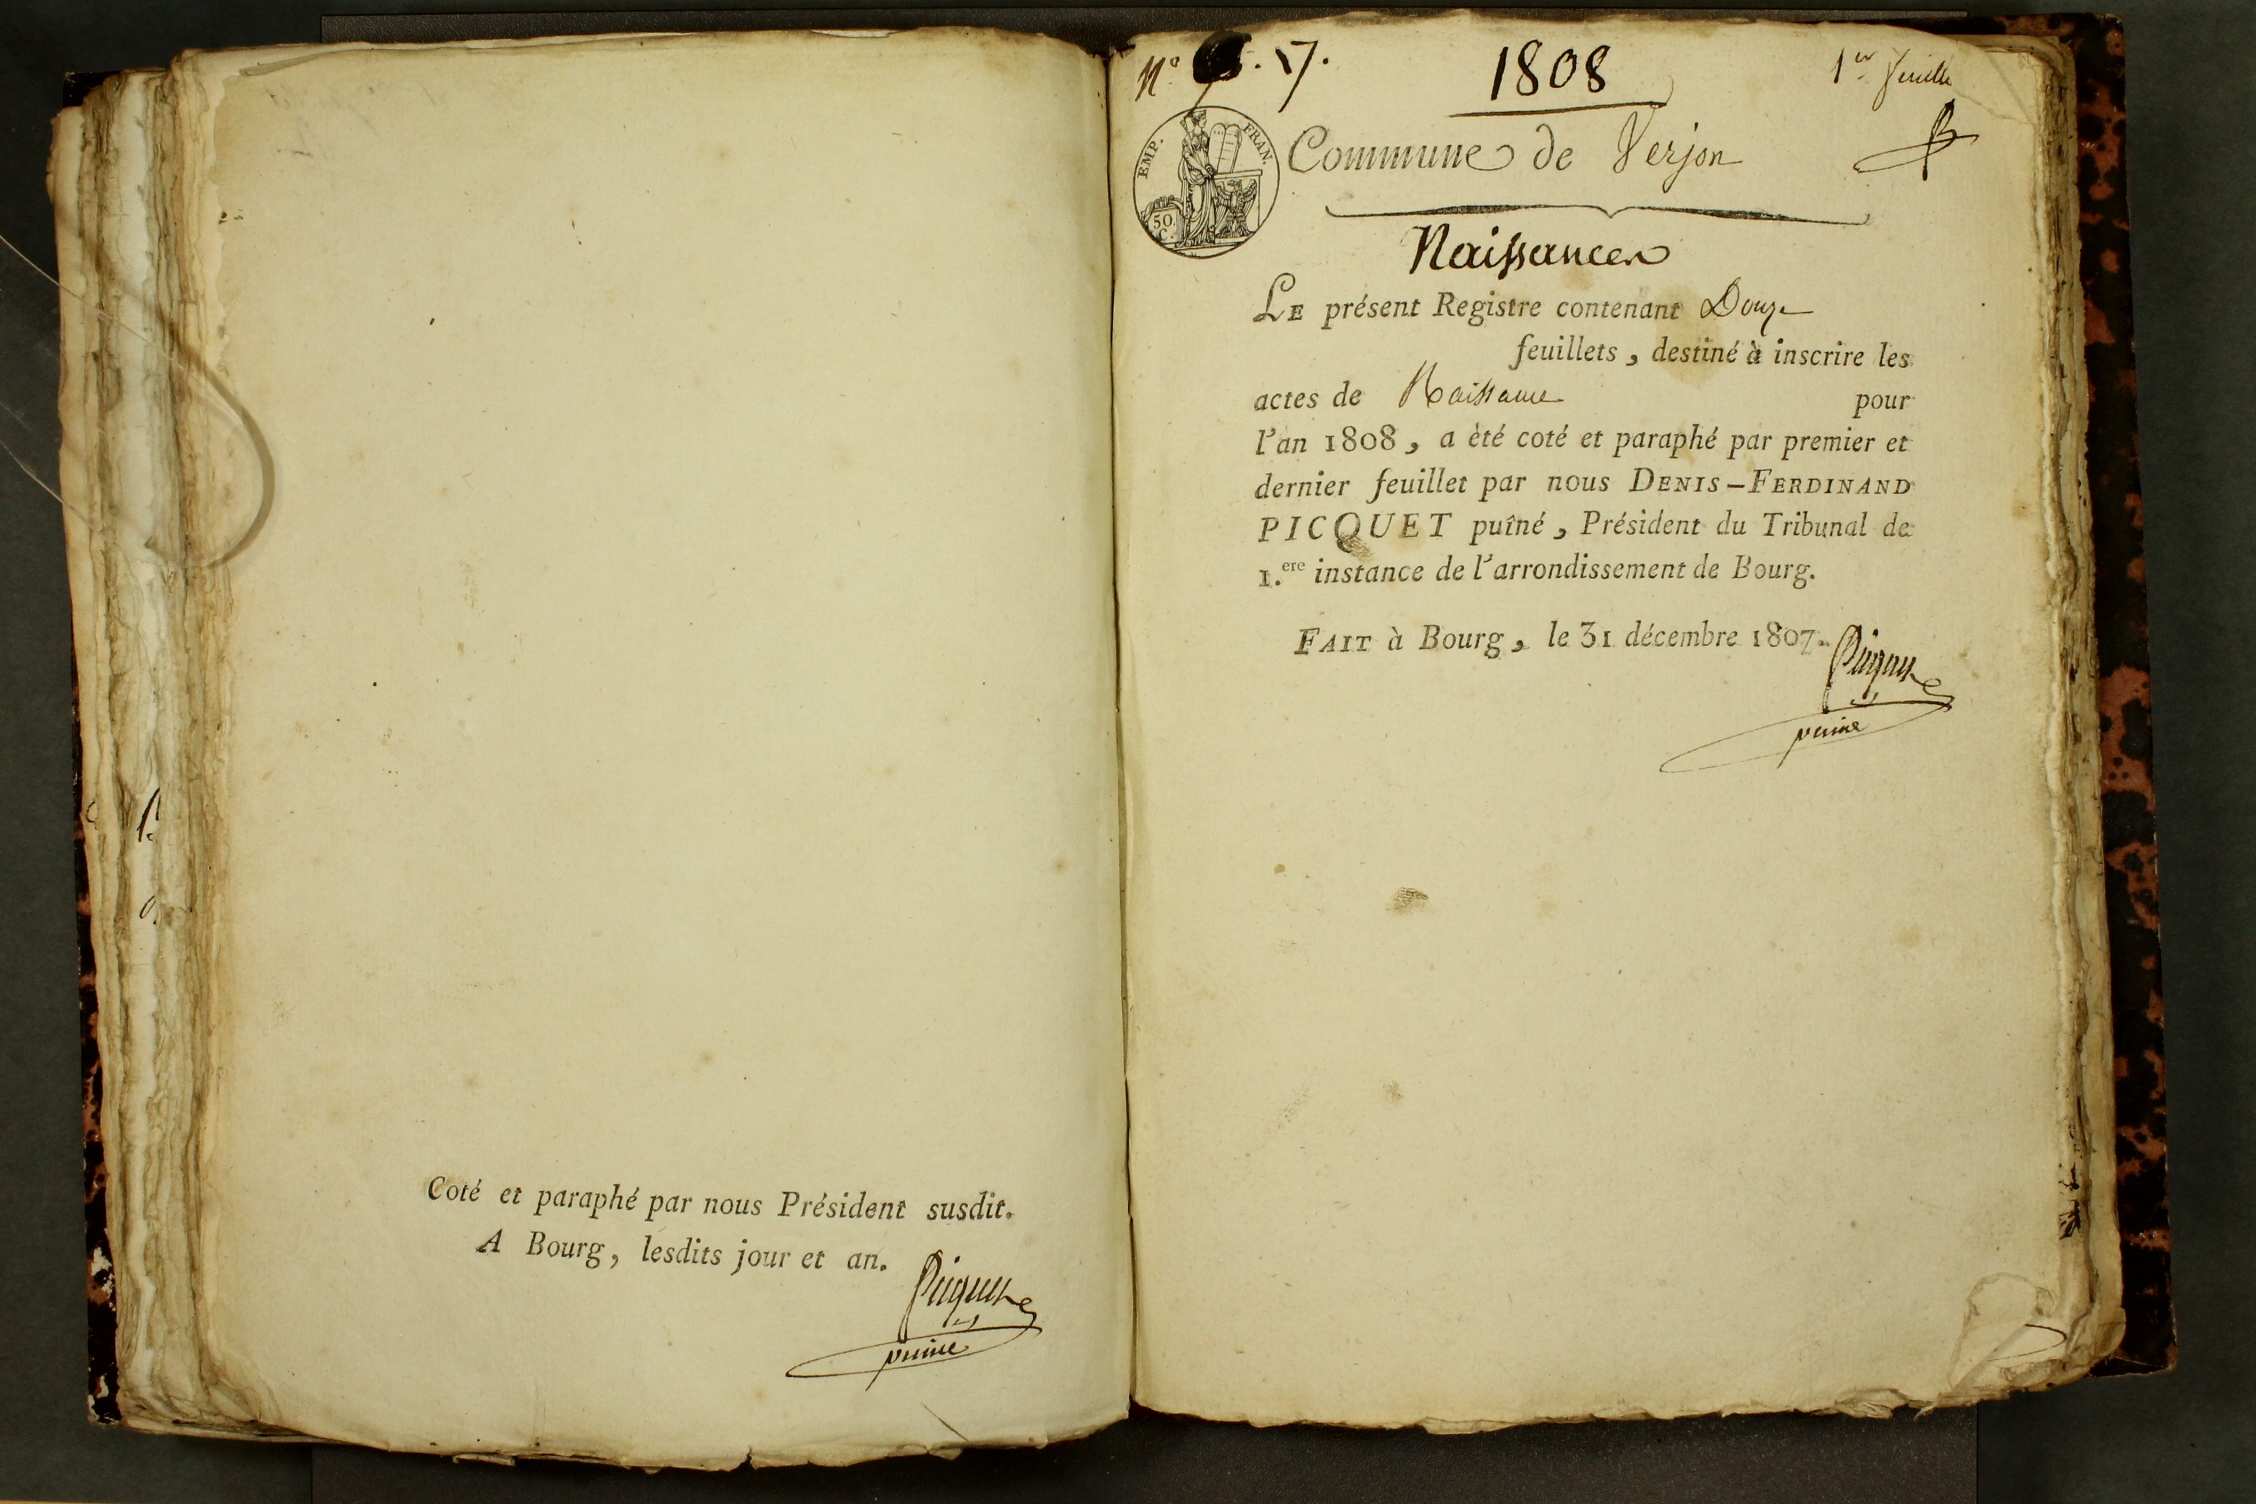 Coté et paraphé par nous Président susdit.
A Bourg, lesdits jour et an.
Picquet
puiné
N.º 17.
1808
1er feuillet
EMP. FRAN.
50 C.
Commune de Verjon
Naissances
LE présent Registre contenant Douze
feuillets, destiné à inscrire les
actes de Naissance pour
l'an 1808, a èté coté et paraphé par premier et
dernier feuillet par nous DENIS-FERDINAND
PICQUET puîné, Président du Tribunal de
1.ere instance de l'arrondissement de Bourg.
FAIT à Bourg, le 31 décembre 1807.
Picquet
puiné